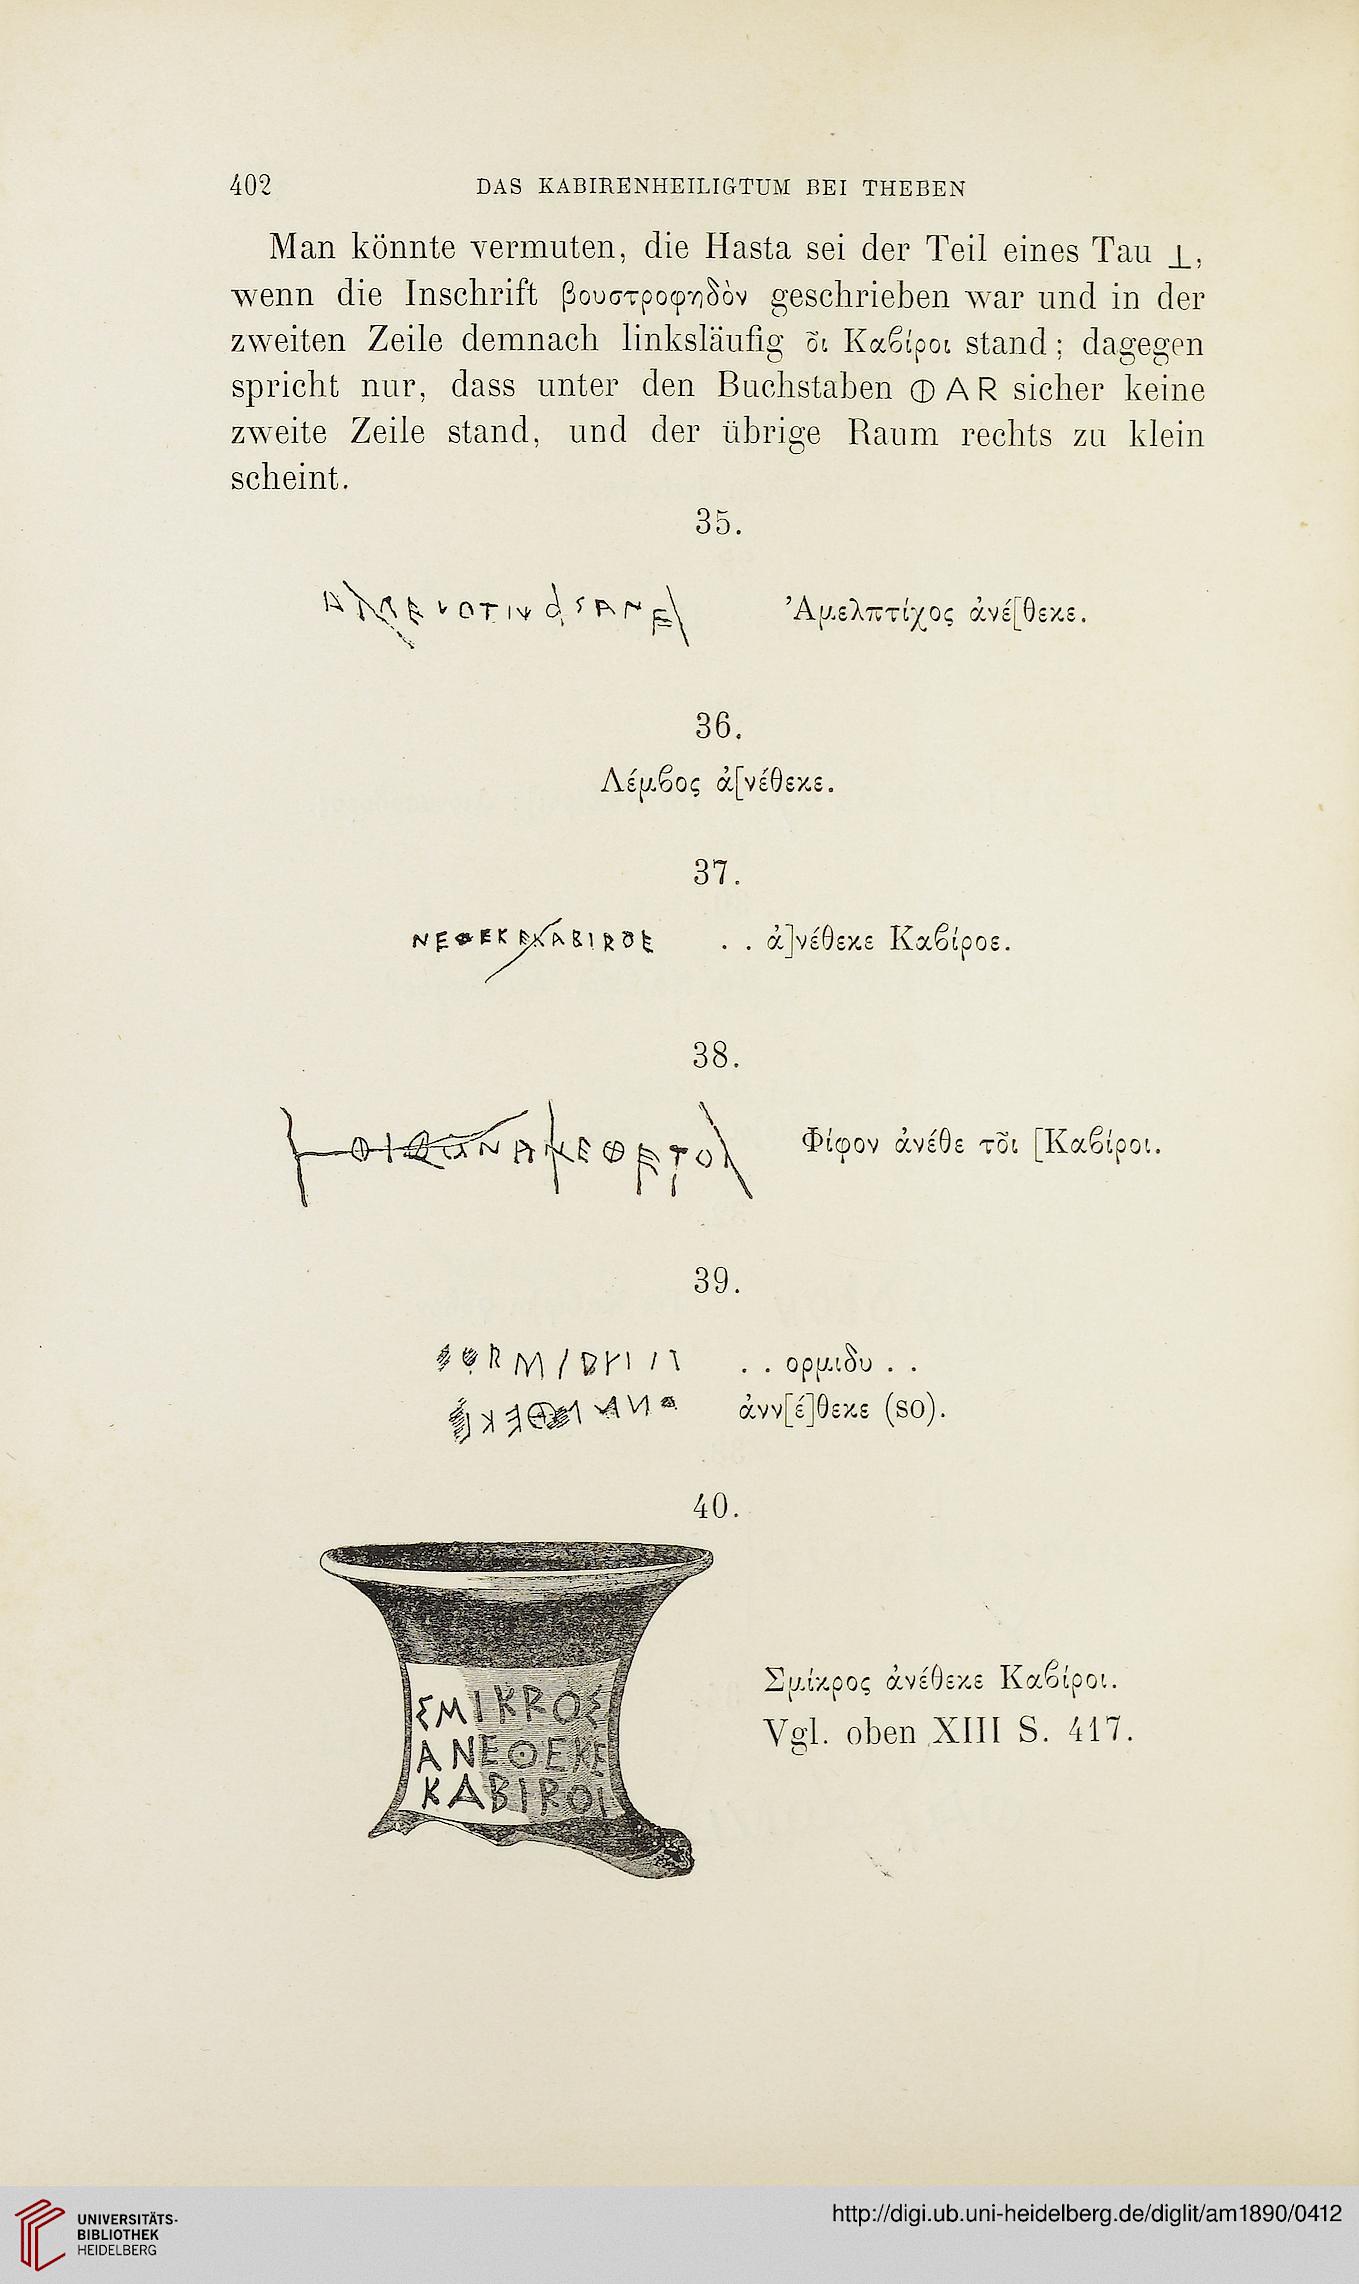 402 DAS KABIRENHEILIGTUM BEI THEBEN
Man könnte vermuten, die Hasta sei der Teil eines Tau ⊥,
wenn die Inschrift βουστροφηδὸν geschrieben war und in der
zweiten Zeile demnach linksläufig õι Καϐίροι stand; dagegen
spricht nur, dass unter den Buchstaben ⏀ A R sicher keine
zweite Zeile stand, und der übrige Raum rechts zu klein
scheint.
35.
Ἀμελπτίχος ἀνέ[θεκε.
36.
Λέμϐος ἀ[νέθεκε.
37.
ΝΕΘΕΚΕΚΑΒΙRΟΕ . . ἀ]νέθεκε Καϐίροε.
38.
Φίφον ἀνέθε τõι [Καϐίροι.
39.
. . ορμιδυ . .
ἀνν[έ]θεκε (so).
40.
ΣΜΙΚRΟΣ
ΑΝΕΘΕΚΕ
ΚΑΒΙRΟΙ
Σμίκρος ἀνέθεκε Καϐίροι.
Vgl. oben XIII S. 417.
UNIVERSITÄTS-
BIBLIOTHEK
HEIDELBERG
http://digi.ub.uni-heidelberg.de/diglit/am1890/0412